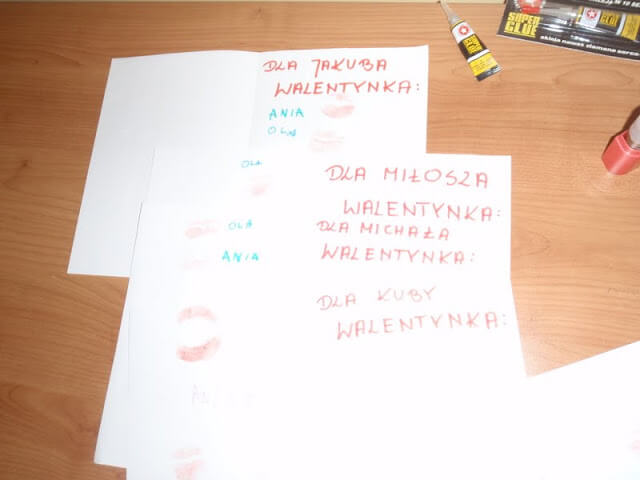 DLA JAKUBA
WALENTYNKA:
ANIA
OLA
OLA
DLA MIŁOSZA
WALENTYNKA:
OLA
DLA MICHAŁA
ANIA
WALENTYNKA:
DLA KUBY
WALENTYNKA:
SUPER
GLUE
SUPER
GLUE